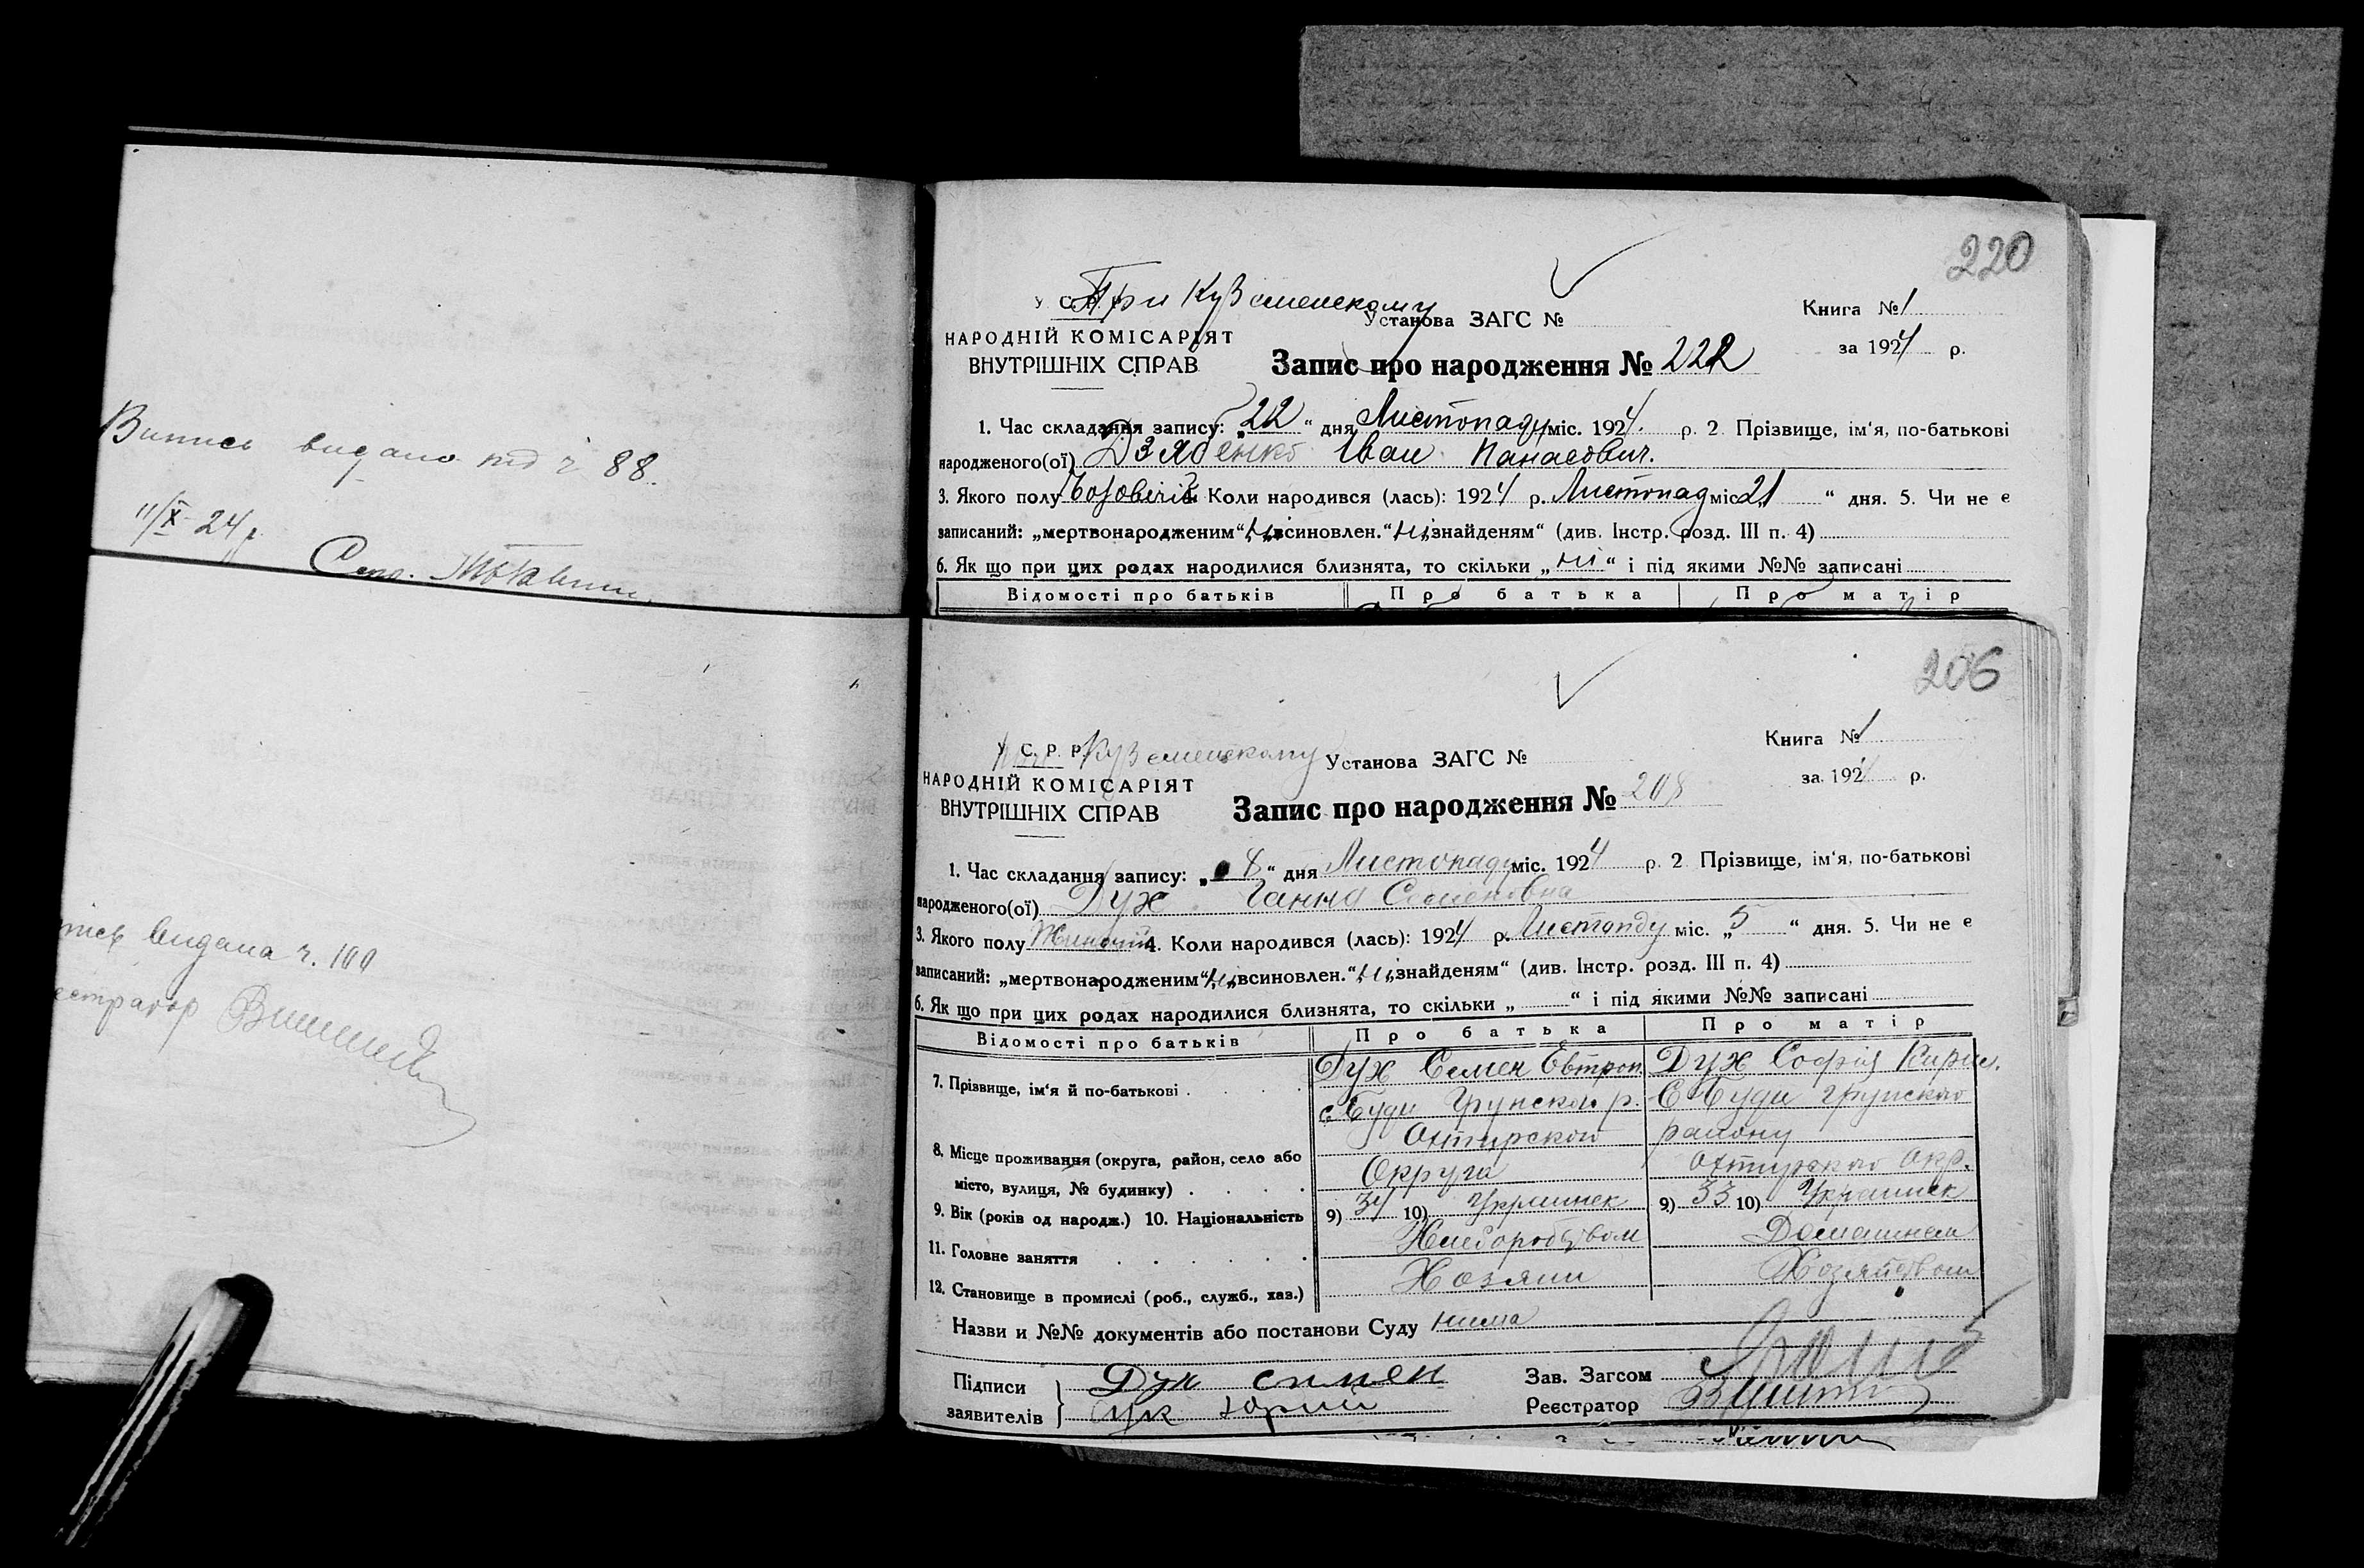 Випись видано під ч 88.
11/X 24 р.
220
У. С. Р. Р.
При Куземенскому
Установа ЗАГС №
Книга № 1
НАРОДНІЙ КОМІСАРІЯТ
за 1924 р.
ВНУТРІШНІХ СПРАВ
Запис про народження № 222
1. Час складання запису: „22“ дня Листопаду міс. 1924. р. 2. Прізвище, ім‘я, по-батькові
народженого(ої) Дзябенко Іван Панасович.
3. Якого полу 4. Коли народився (лась): 1924 р. Листопад міс. 21 “ дня. 5. Чи не є
записаний: „мертвонародженим“ ні „всиновлен.“ ні „знайденям“ (див. Інстр. розд. III п. 4)
6. Як що при цих родах народилися близнята, то скільки „ ні “ і під якими №№ записані
Відомості про батьків Про батька Про матір
206
У. С. Р. Р.
Куземенскому
Установа ЗАГС №
Книга № 1
НАРОДНІЙ КОМІСАРІЯТ
за 1924 р.
ВНУТРІШНІХ СПРАВ
Запис про народження № 208
1. Час складання запису: „ 8 “ дня Листопаду міс. 1924 р. 2 Прізвище, ім‘я, по-батькові
народженого(ої) Дух Ганна Семеновна
3. Якого полу Жиночий 4. Коли народився (лась): 1924 р. Листопду міс. „ 5 “ дня. 5. Чи не є
записаний: „мертвонародженим“ ні „всиновлен.“ ні „знайденям“ (див. Інстр. розд. III п. 4)
6. Як що при цих родах народилися близнята, то скільки „ “ і під якими №№ записані
Відомості про батьків Про батька Про матір
7. Прізвище, ім‘я й по-батькові . Дух Семен Евтроп. Дух Софія Кирил.
с. Буди Грунского р. С Буди Грунского
Охтирского району
8. Місце проживання (округа, район, село або
місто, вулиця, № будинку) . Округа Охтирского Окр.
9. Вік (років од народж.) 10. Національність 9) 34 10) Украинек 9) 33 10) Украинек
11. Головне заняття Хлеборобством Домашнем
12. Становище в промислі (роб., служб., хаз.) Хозяин Хозяйством
Назви и №№ документів або постанови Суду нима
Підписи Дух Симен Зав. Загсом
заявителів Юрий Реєстратор
пись видана ч. 100
естратор